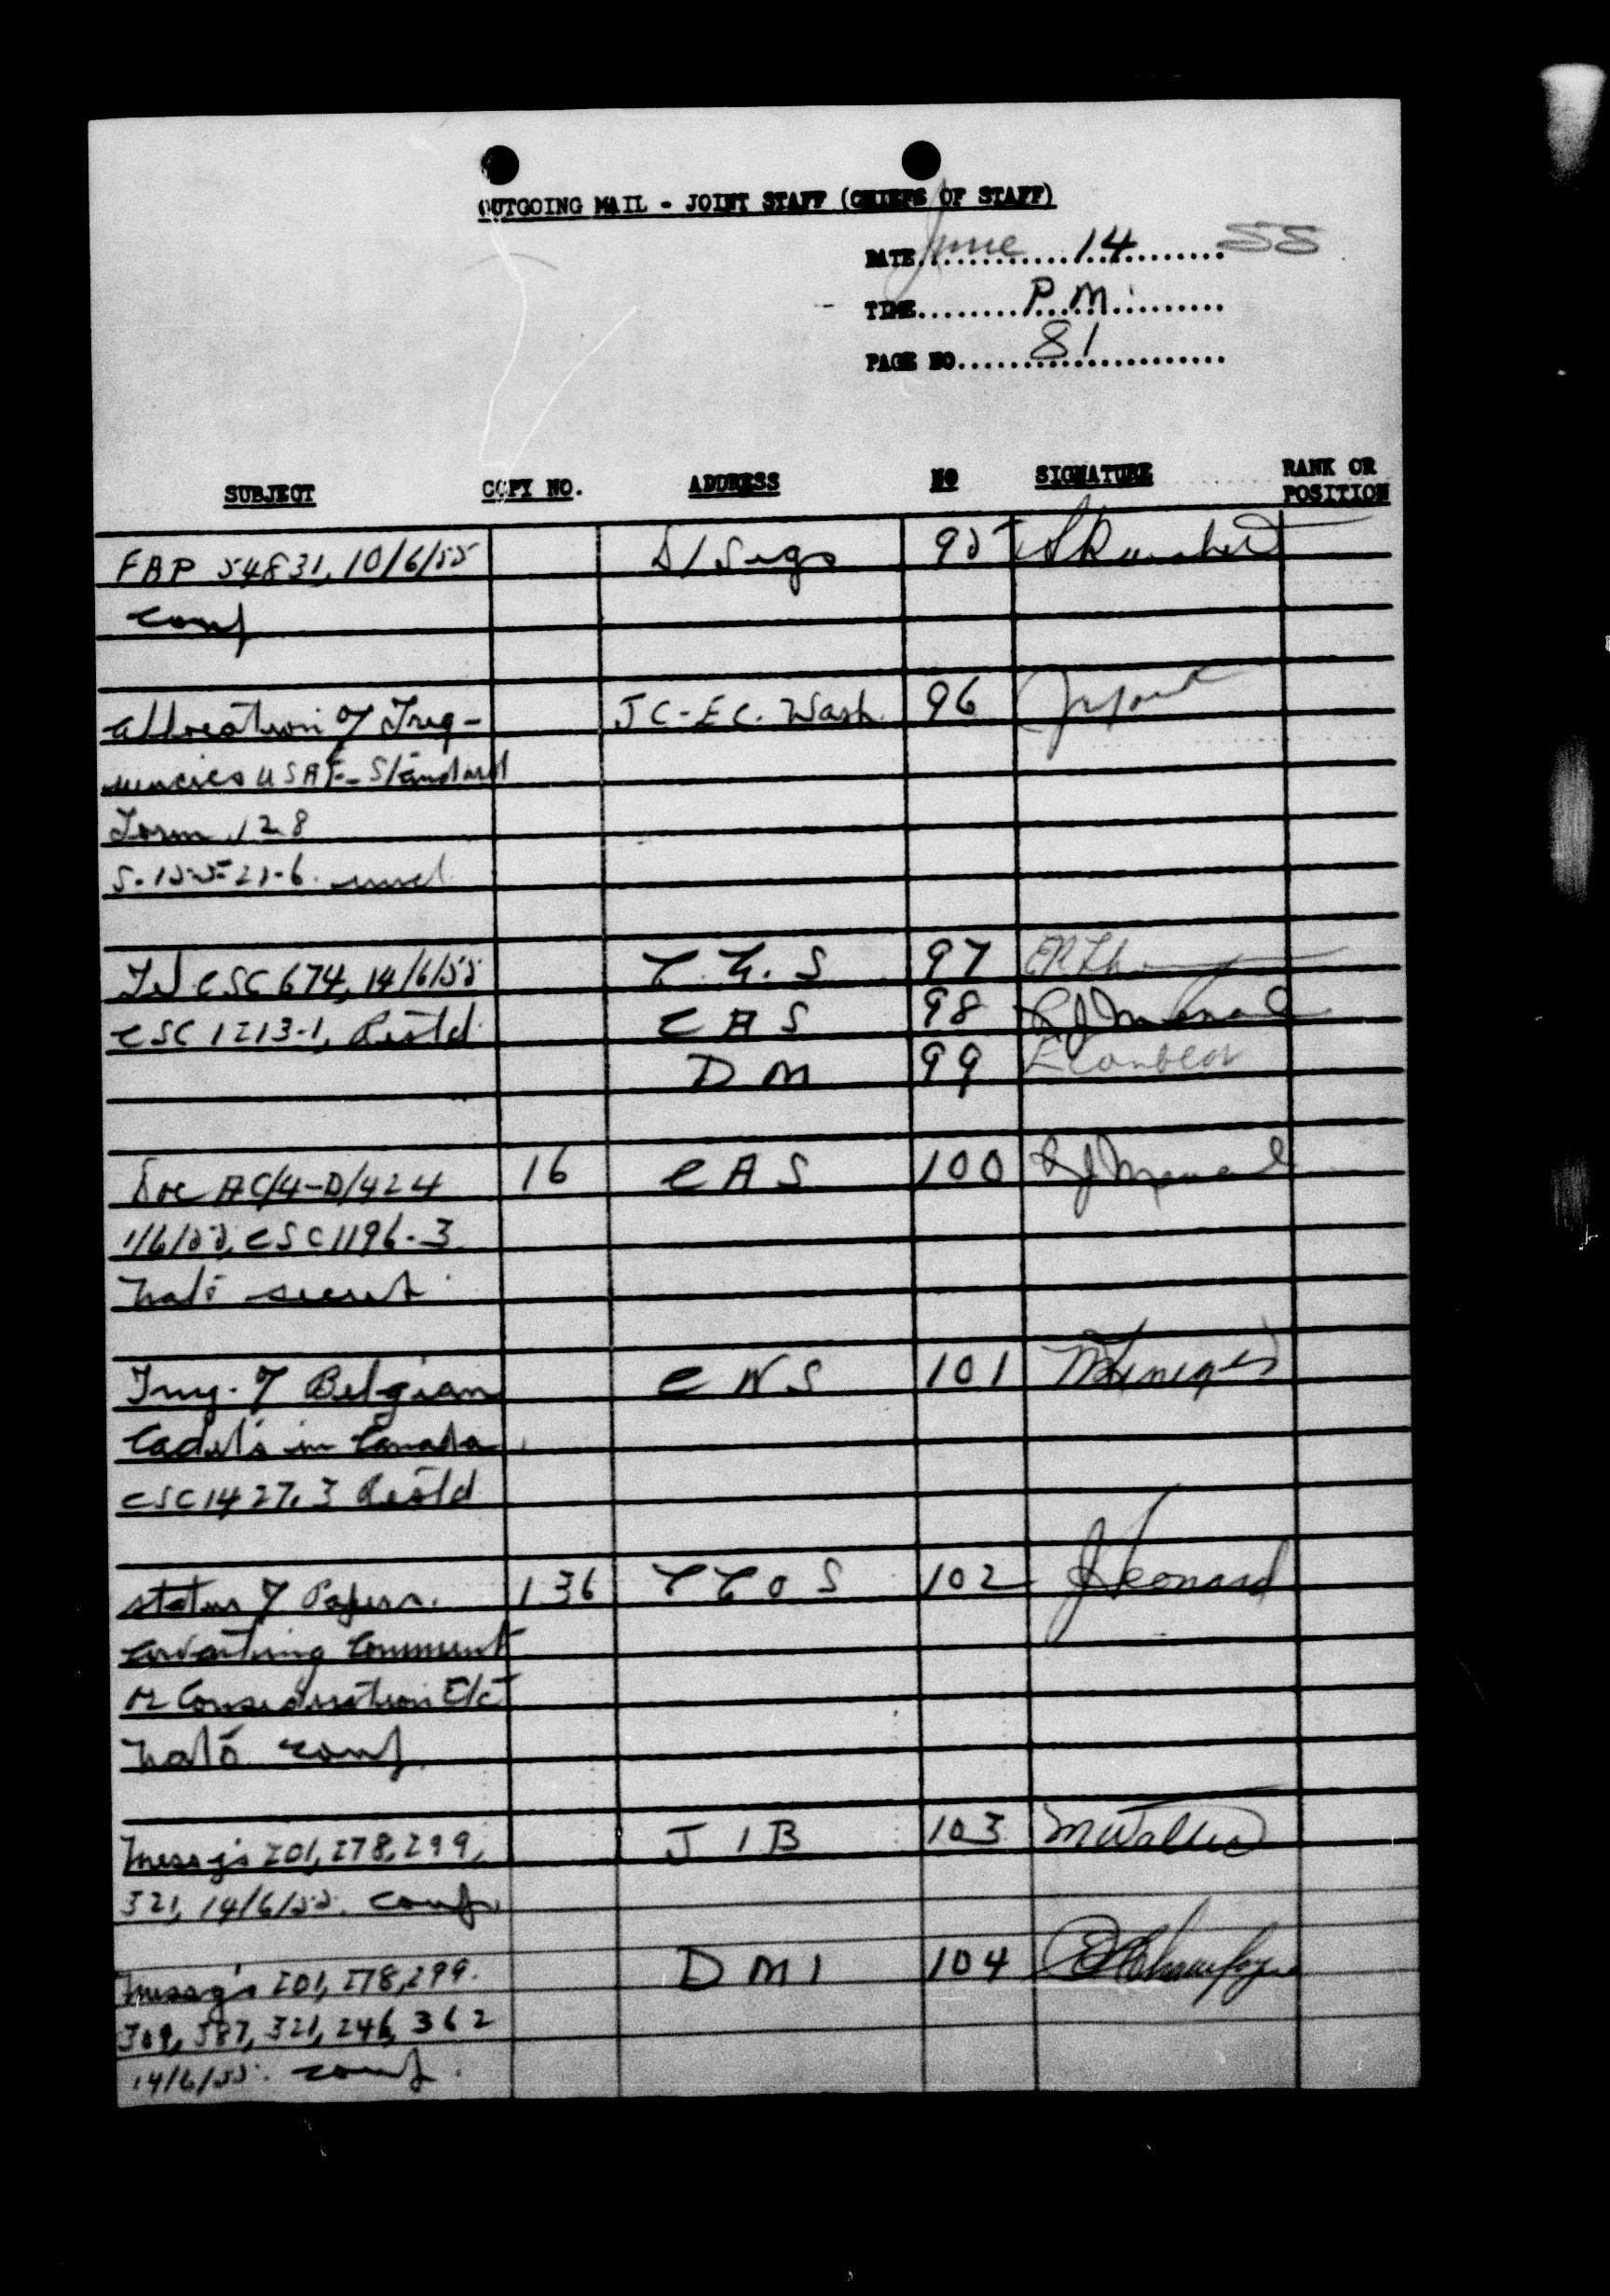 OUTGOING MAIL - JOINT STAFF (CHIEFS OF STAFF)
DATE June 14 55
TIME P.M.
PAGE NO. 81
SUBJECT COPY NO. ADDRESS NO SIGNATURE RANK OR POSITION
FBP 54831, 10/6/55 D/Sigs 95
conf
Allocation of Freq- JC-EC. Wash. 96
uencies USAF-Standard
Form 128
S-15-5-21-6. uncl.
CSC 674, 14/6/55 C.G.S 97
CSC 1213-1, Restd. CAS 98
DM 99
Doc AC/4-D/424 16 CAS 100
1/6/55, CSC 1196-3
Nato secret.
Trng. of Belgian CNS 101
Cadets in Canada
CSC 1427.3 Restd
Status of Papers. 136 CCOS 102 J Leonard
awaiting Comment
or Consideration Etc
Nato conf.
Messg's 201, 278, 299, JIB 103
321, 14/6/55. conf.
Messg's 201, 278, 299. DMI 104
309, 387, 321, 246, 362
14/6/55. conf.